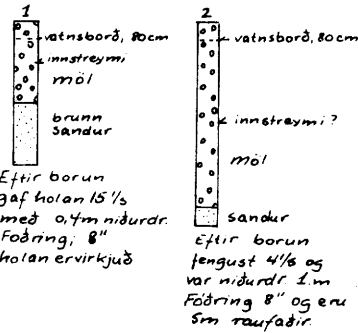 1
vatnsborð, 80cm
innstreymi
möl
brunn
sandur
Eftir borun
gaf holan 15 l/s
með 0,4m niðurdr.
Foðring; 8"
holan er virkjuð
2
vatnsborð, 80cm
innstreymi?
möl
sandur
Eftir borun
fengust 4 l/s og
var niðurdr. 1.m
Fóðring 8" og eru
5m raufaðir.